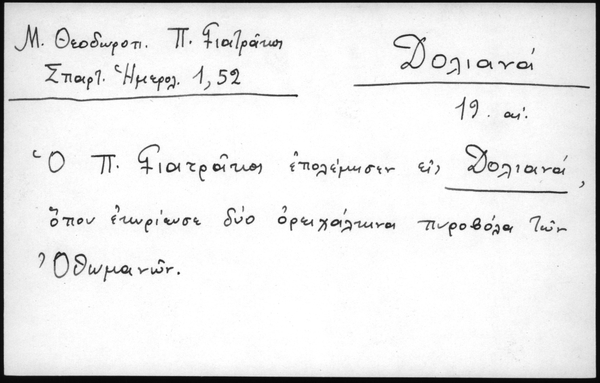 Μ. Θεοδωροπ. Π. Γιατρᾶκος
Σπαρτ. Ἡμερολ. 1, 52
Δολιανά
19. αἰ.
Ὁ Π. Γιατρᾶκος ἐπολέμησεν εἰς Δολιανά,
ὅπου ἐκυρίευσε δύο ὀρειχάλκινα πυροβόλα τῶν
Ὀθωμανῶν.